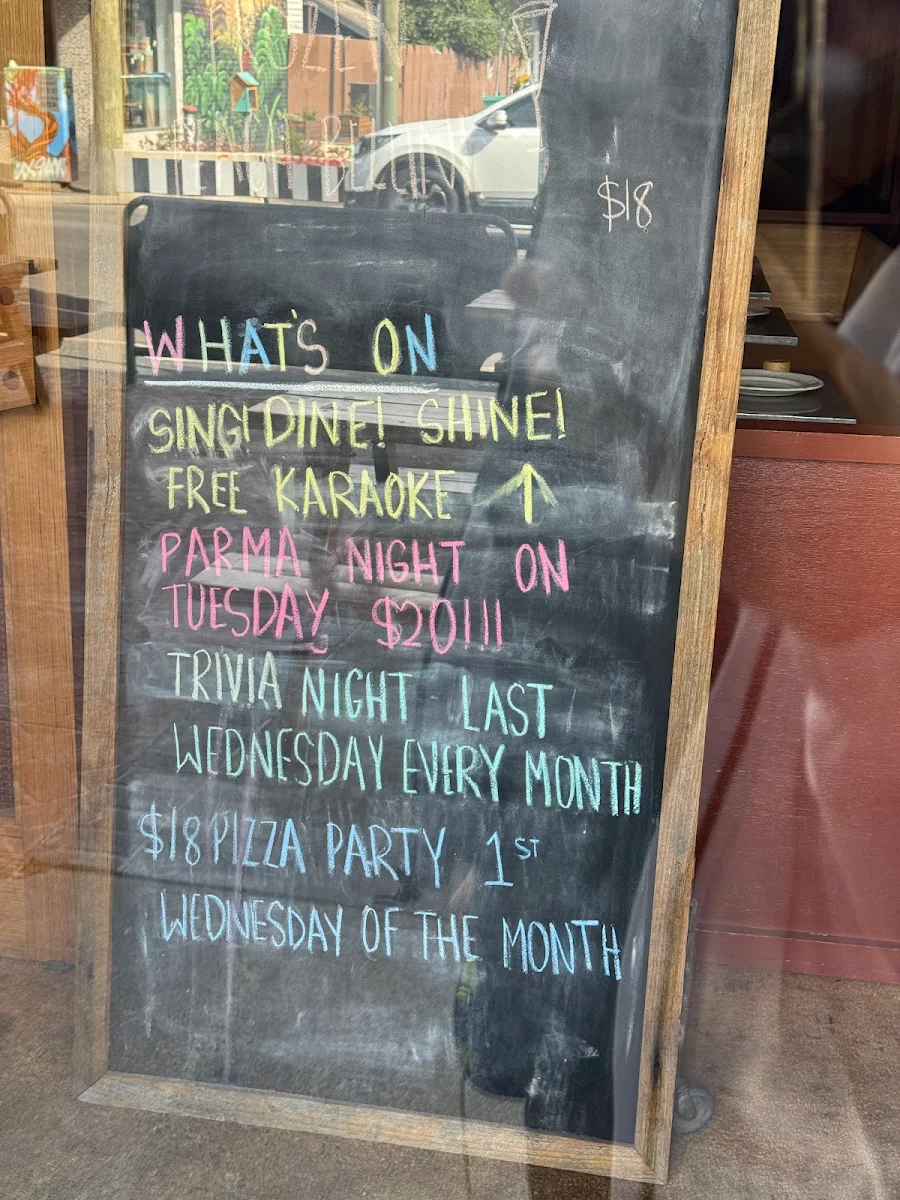 $18
WHAT'S ON
SING! DINE! SHINE!
FREE KARAOKE ↑
PARMA NIGHT ON
TUESDAY $20!!!
TRIVIA NIGHT - LAST
WEDNESDAY EVERY MONTH
$18 PIZZA PARTY 1ST
WEDNESDAY OF THE MONTH